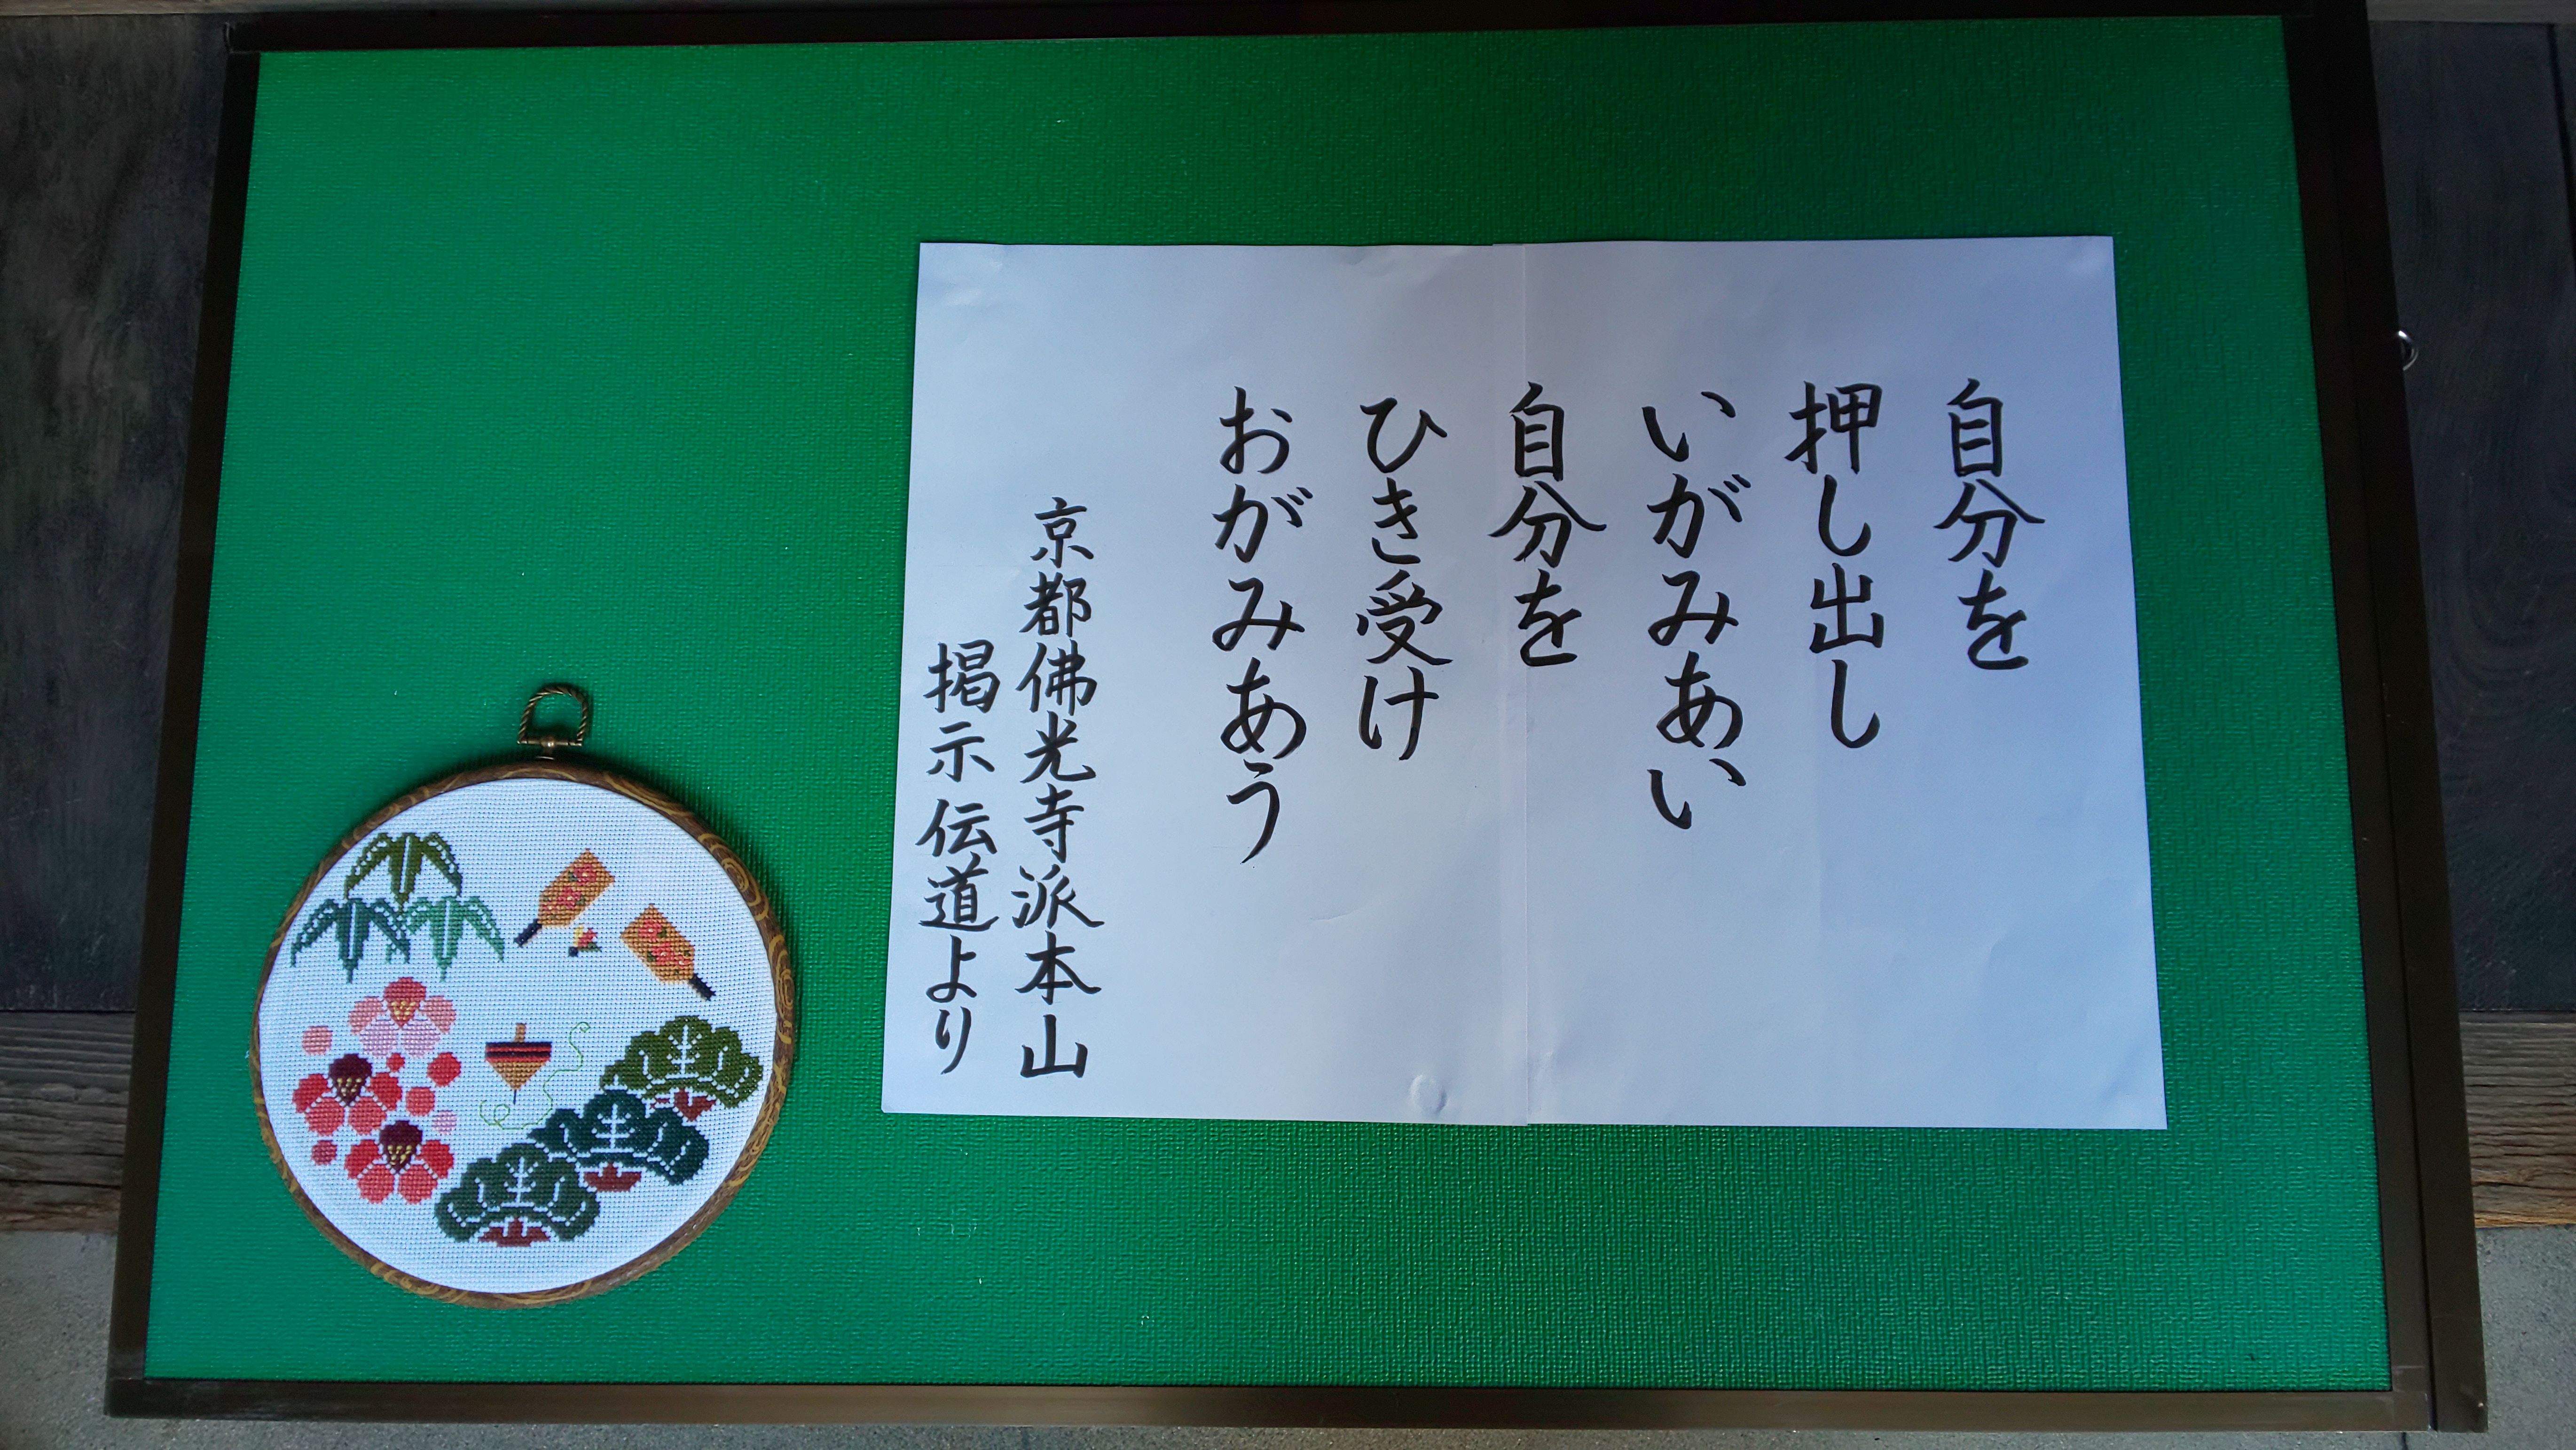 自分を
押し出し
いがみあい
自分を
ひき受け
おがみあう
京都佛光寺派本山
掲示伝道より